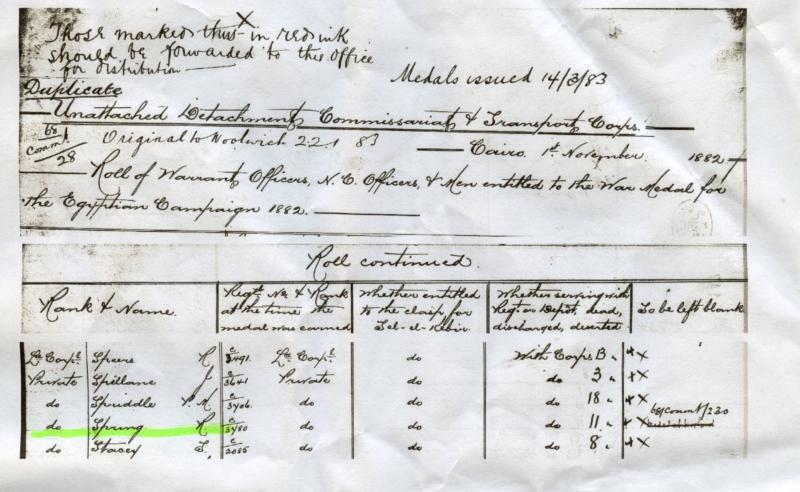 Those marked thus X in red ink
should be forwarded to this Office
for distribution
Medals issued 14/3/83
Duplicate
Unattached Detachment Commissariat & Transport Corps.
68
Comm!
28
Original to Woolwich 22.1 83
Cairo. 1st November. 1882
Roll of Warrant Officers, N. C. Officers, & Men entitled to the War Medal for
the Egyptian Campaign 1882.
Roll continued.
Rank & Name. Regtl No. & Rank at the time the medal was earned Whether entitled to the clasp for Tel-el-Kebir. Whether serving with Regt. or Depot, dead, discharged, deserted To be left blank
Lce Corpl. Speere H c/3491. Lce Corpl. do With Corps B " + X
Private Spillane J c/3641 Private do do 3 " + X
do Spriddle P. M c/3706. do do do 18 " + X
do Spring H c/3780 do do do 11 " + X 68/Comm!/230
do Stacey S. c/2085 do do do 8 " + X